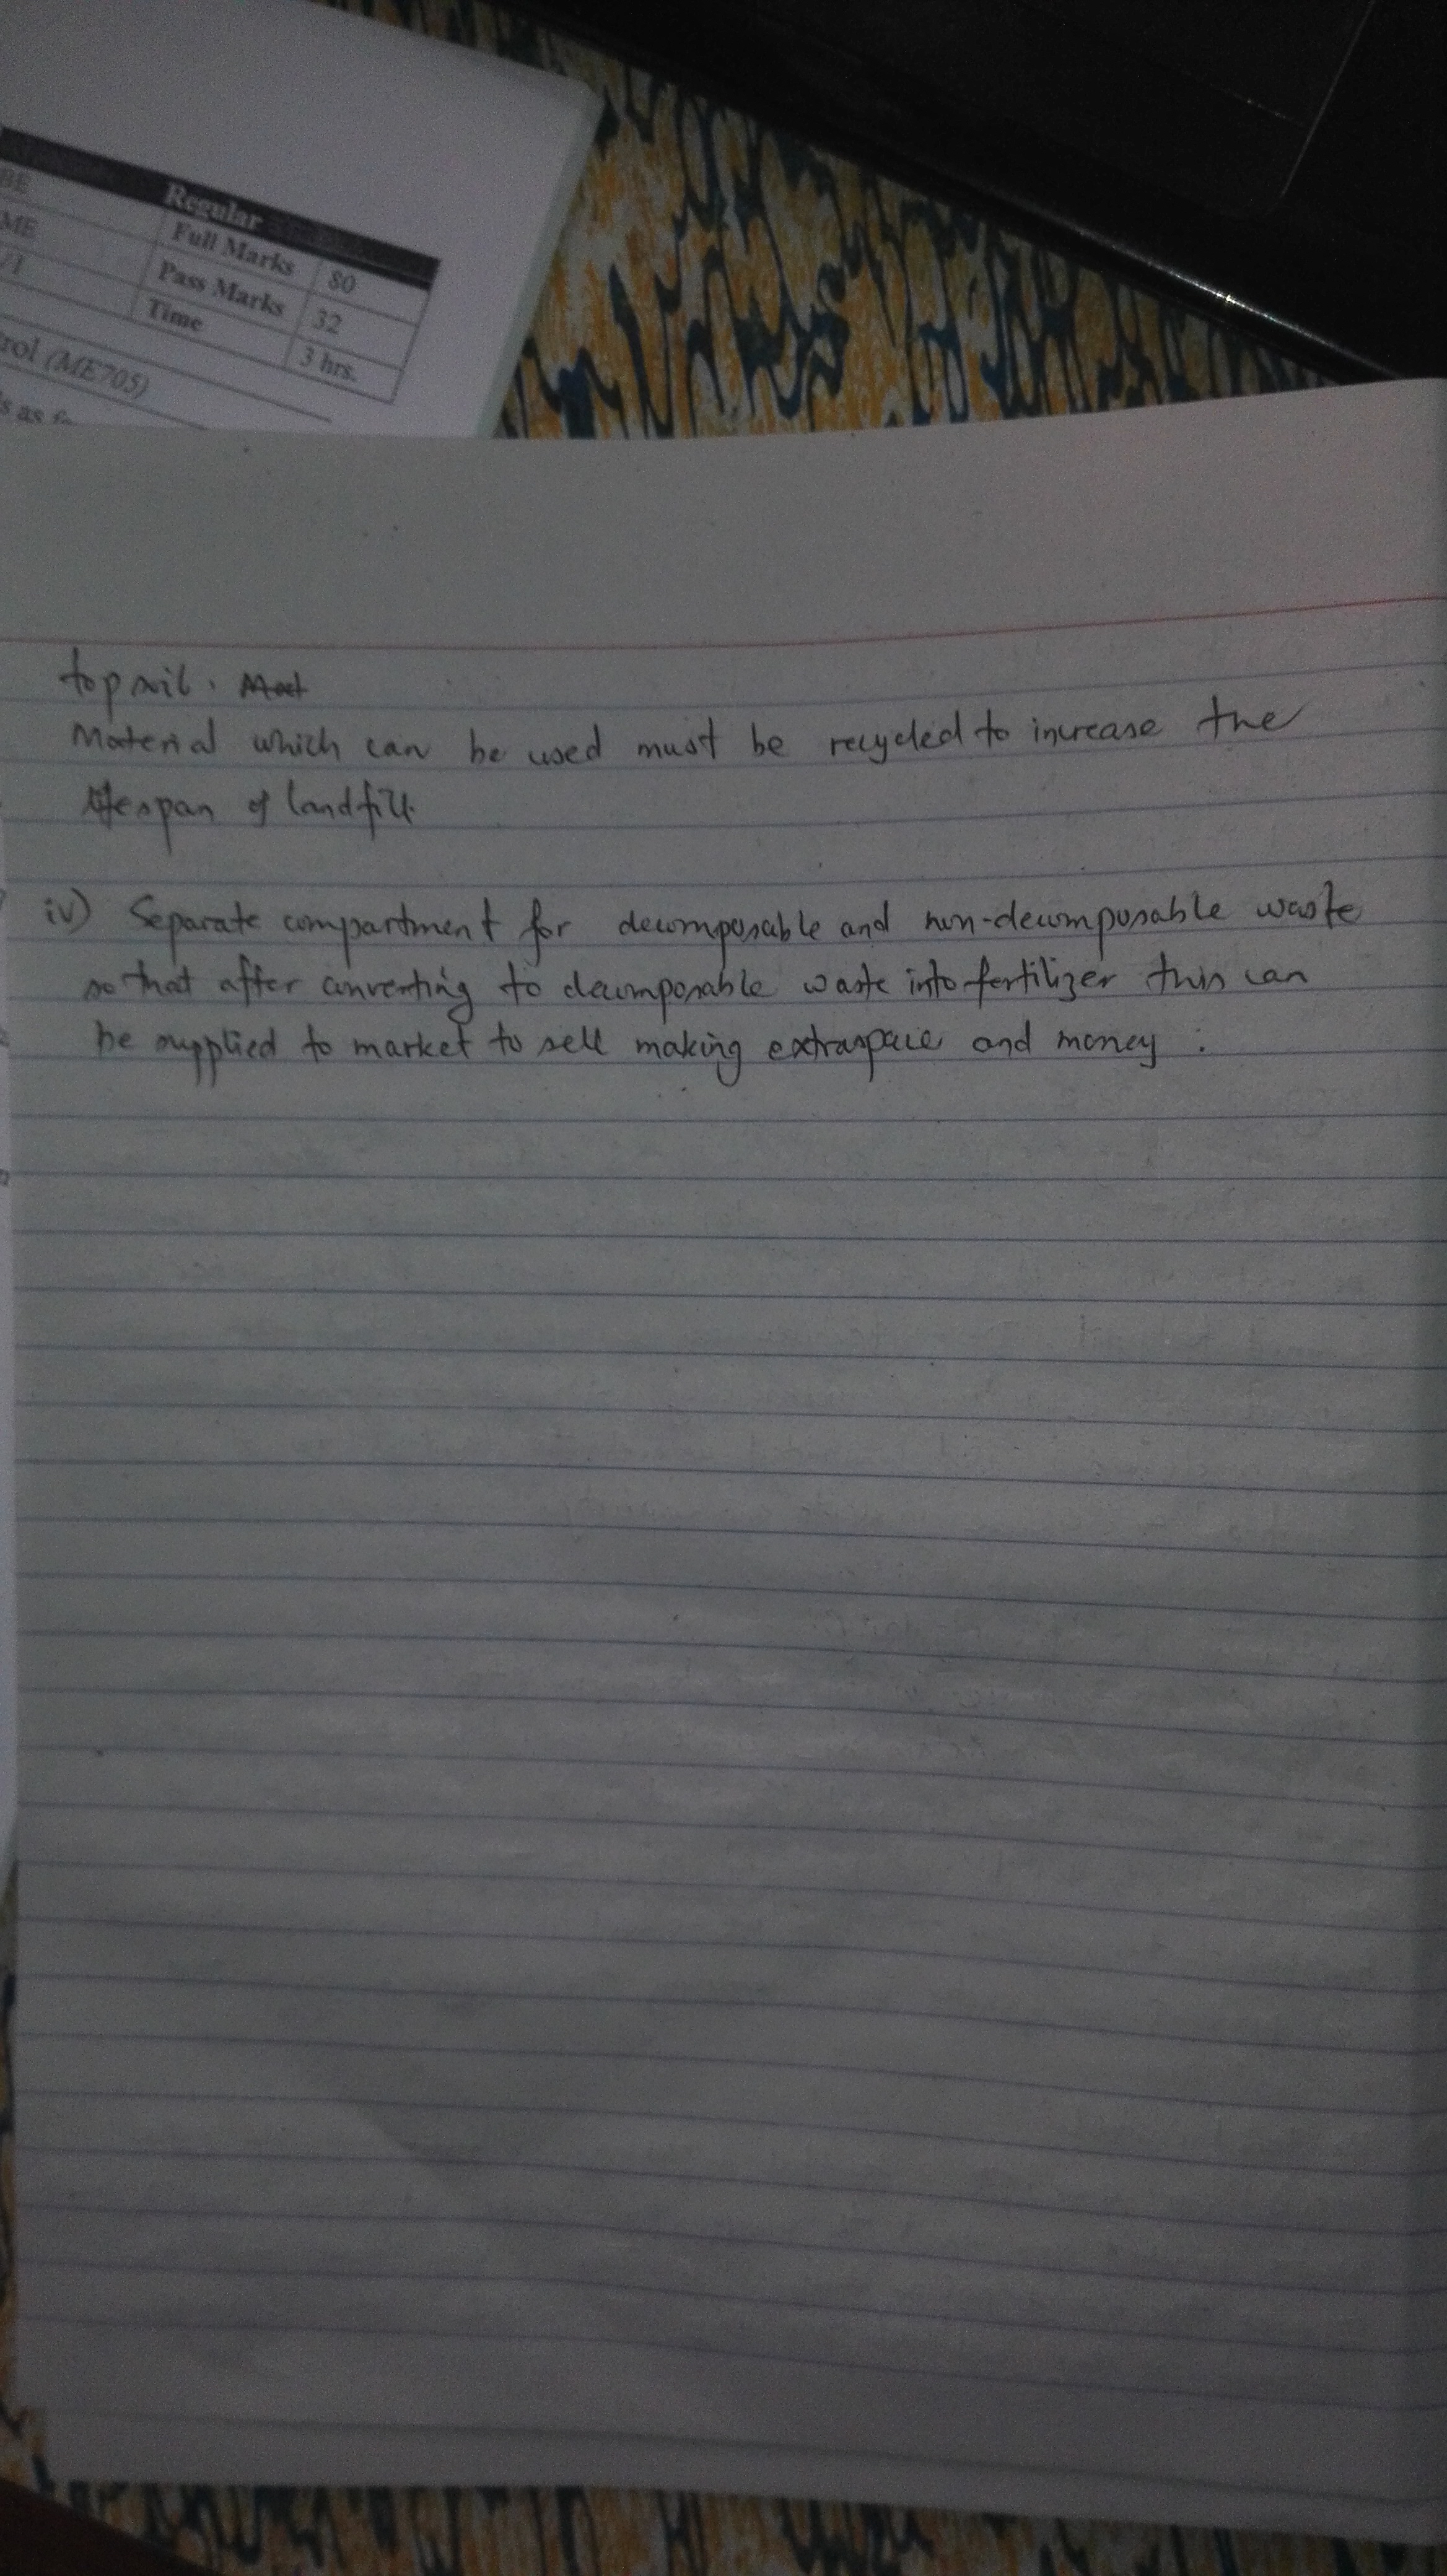 BE
Regular
ME
Full Marks
80
/I
Pass Marks
32
Time
3 hrs.
rol (ME705)
s as
topsoil. Mat
Material which can be used must be recycled to increase the
lifespan of landfill.
iv) Separate compartment for decomposable and non-decomposable waste
so that after converting to decomposable waste into fertilizer this can
be supplied to market to sell making extraspace and money.